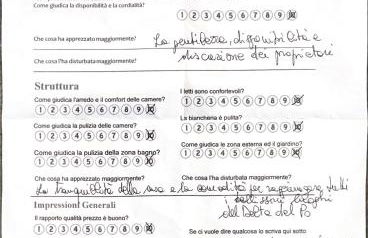 Come giudica la disponibilità e la cordialità?
1 2 3 4 5 6 7 8 9 10
Che cosa ha apprezzato maggiormente?
La gentilezza, disponibilità e
discrezione dei proprietari
Che cosa l'ha disturbata maggiormente?
Struttura
Come giudica l'arredo e il comfort delle camere?
1 2 3 4 5 6 7 8 9 10
I letti sono confortevoli?
1 2 3 4 5 6 7 8 9 10
Come giudica la pulizia delle camere?
1 2 3 4 5 6 7 8 9 10
La biancheria è pulita?
1 2 3 4 5 6 7 8 9 10
Come giudica la pulizia della zona bagno?
1 2 3 4 5 6 7 8 9 10
Come giudica le zone esterna ed il giardino?
1 2 3 4 5 6 7 8 9 10
Che cosa ha apprezzato maggiormente?
Che cosa l'ha disturbata maggiormente?
La tranquillità della e la comodità per raggiungere tutti
i bellissimi luoghi
del Delta del Po
Impressioni Generali
Il rapporto qualità prezzo è buono?
1 2 3 4 5 6 7 8 9 10
Se ci vuole dire qualcosa lo scriva qui sotto